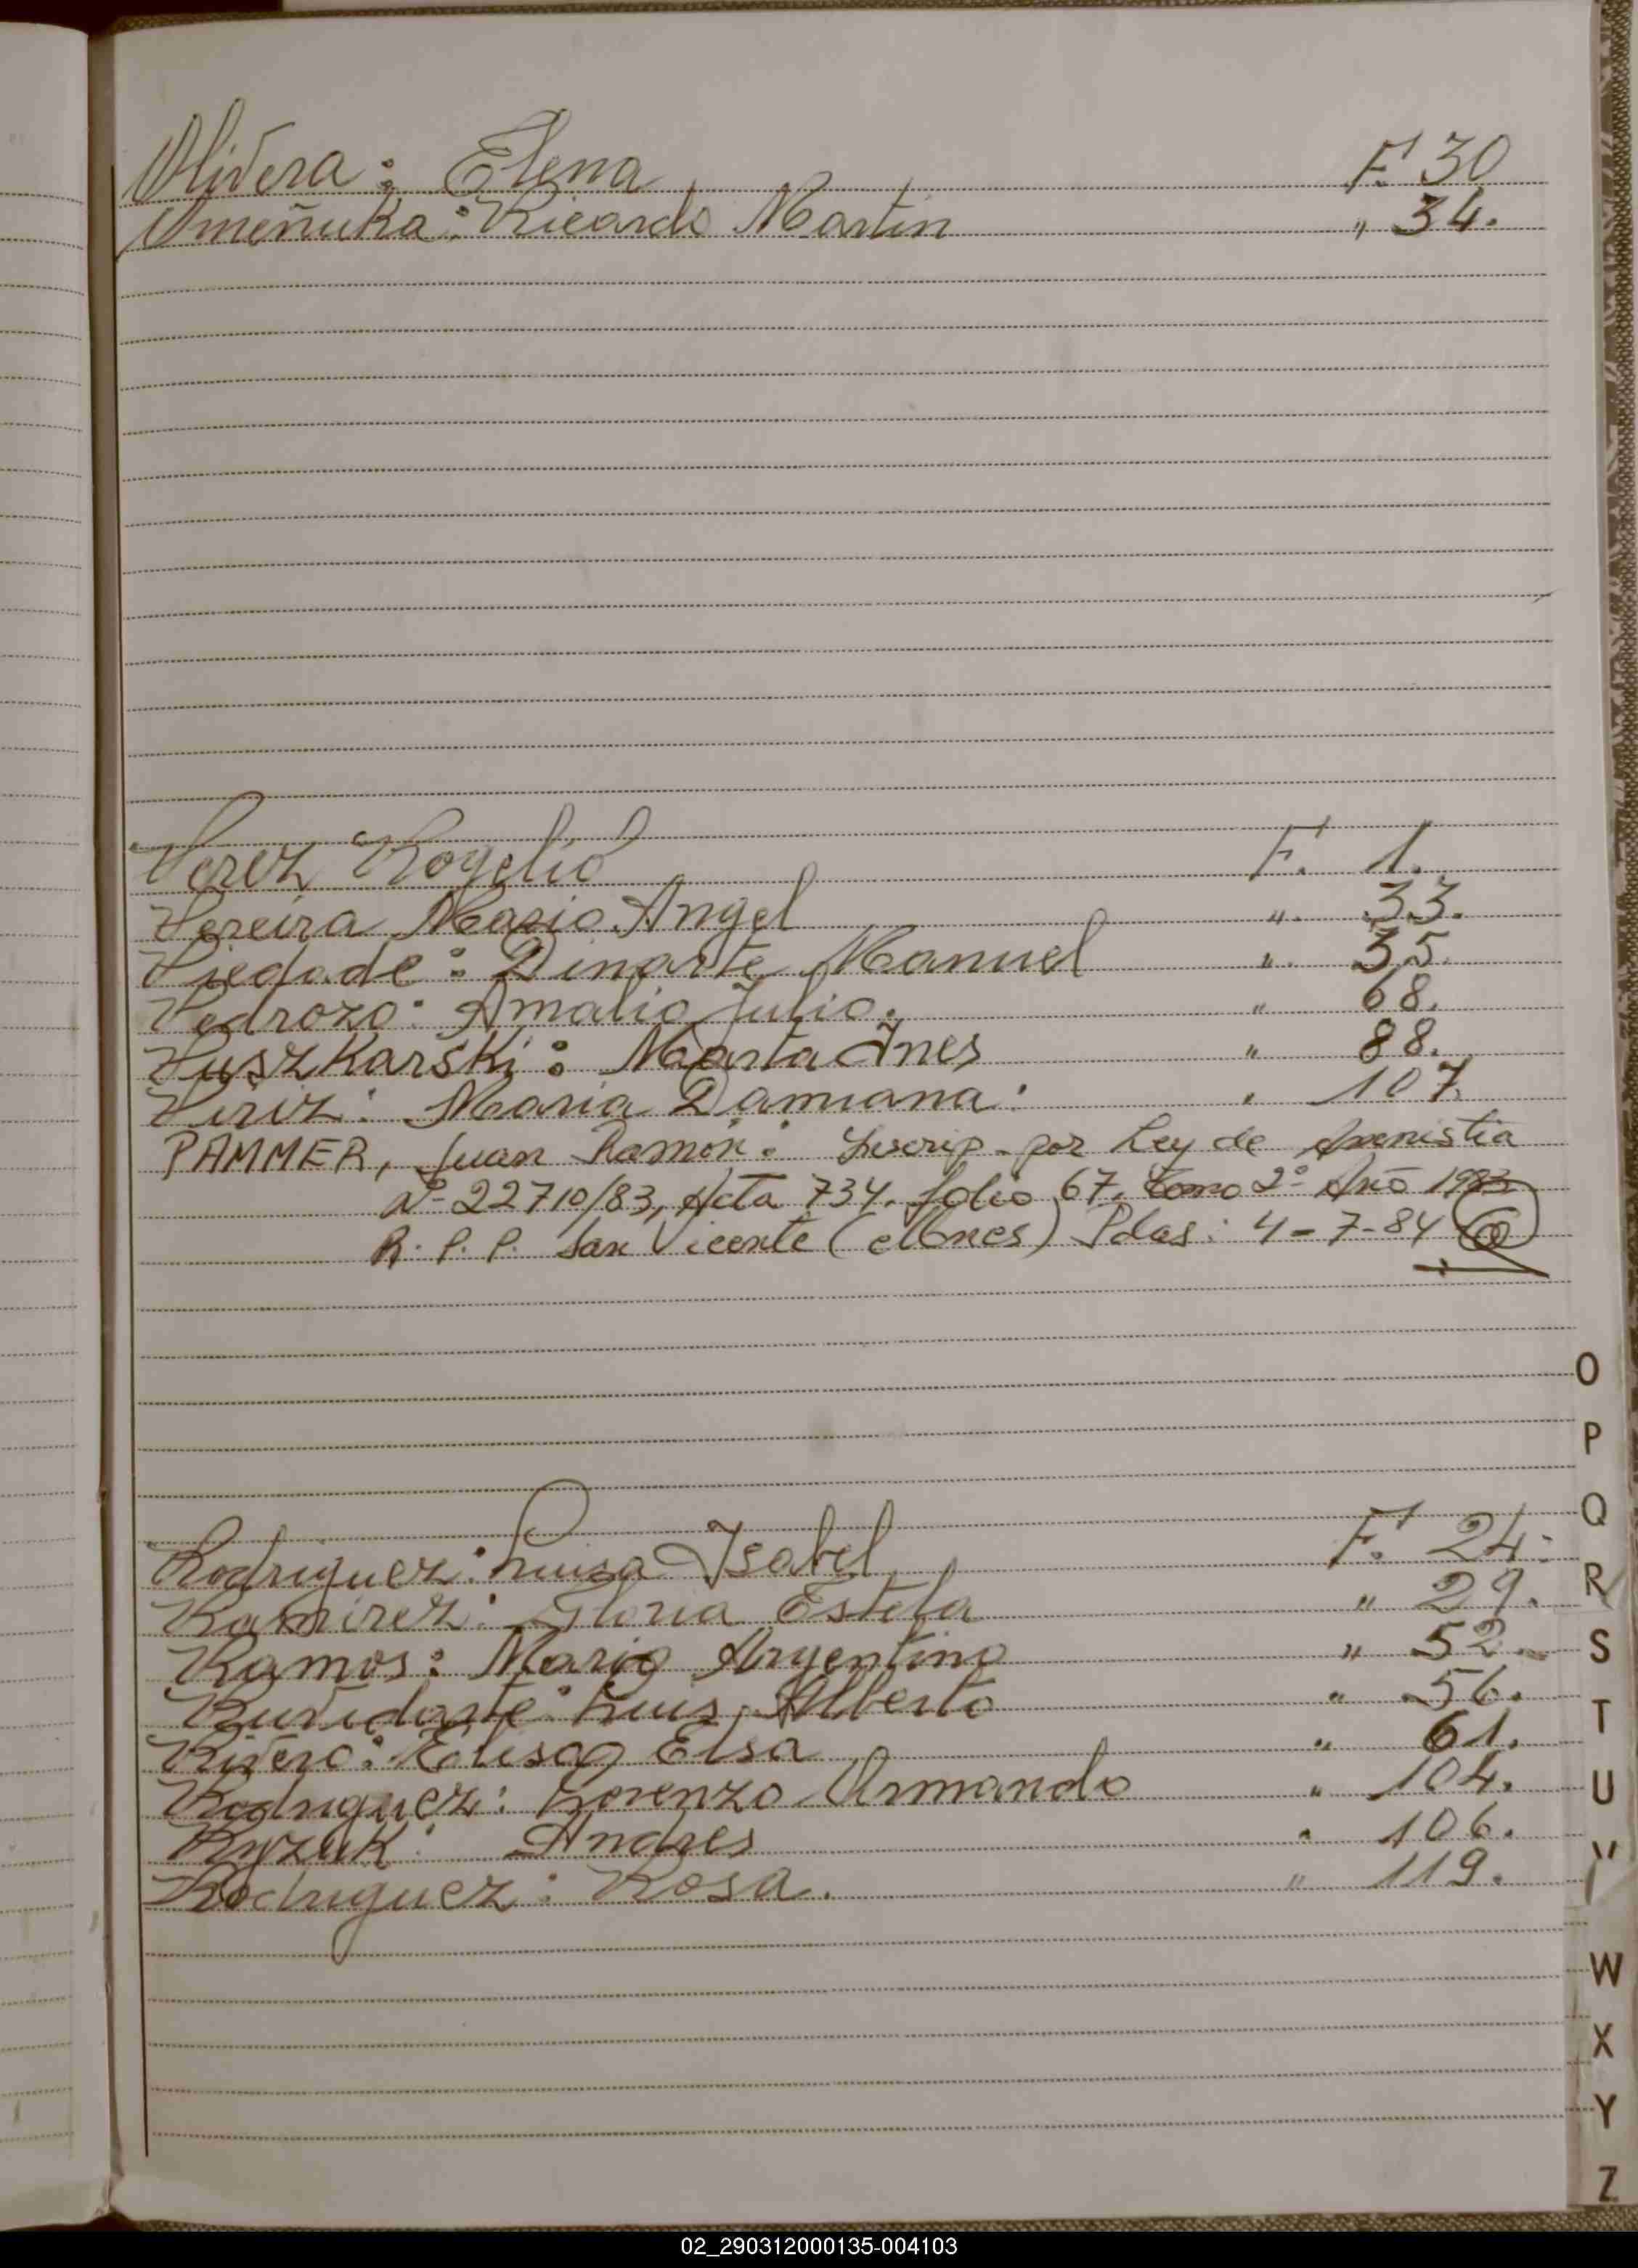 Olivera: Elena F. 30
Omeñuka: Ricardo Martin " 34.
Perez Rogelio F. 1.
Pereira Mario Angel ". 33.
Piedade: Dinarte Manuel ". 35.
Pedrozo: Amalio Julio. " 68.
Puszkarski: Marta Ines " 88.
Piriz: Maria Damiana: " 107.
PAMMER, Juan Ramón: Inscrip. por Ley de Amnistia
Nº 22710/83, Acta 734. folio 67. tomo 2º Año 1983
R. P. P. San Vicente (Mnes) Pdas: 4-7-84
Rodriguez: Luisa Isabel F. 24.
Ramirez: Gloria Estela " 29.
Ramos: Mario Argentino " 52.
Luis Alberto " 56.
Rivero: Elsa " 61.
Rodriguez: Lorenzo Armando " 104.
Ryzuk: Andres " 106.
Rodriguez: Rosa. " 119.
O
P
Q
R
S
T
U
V
W
X
Y
Z
02_290312000135-004103